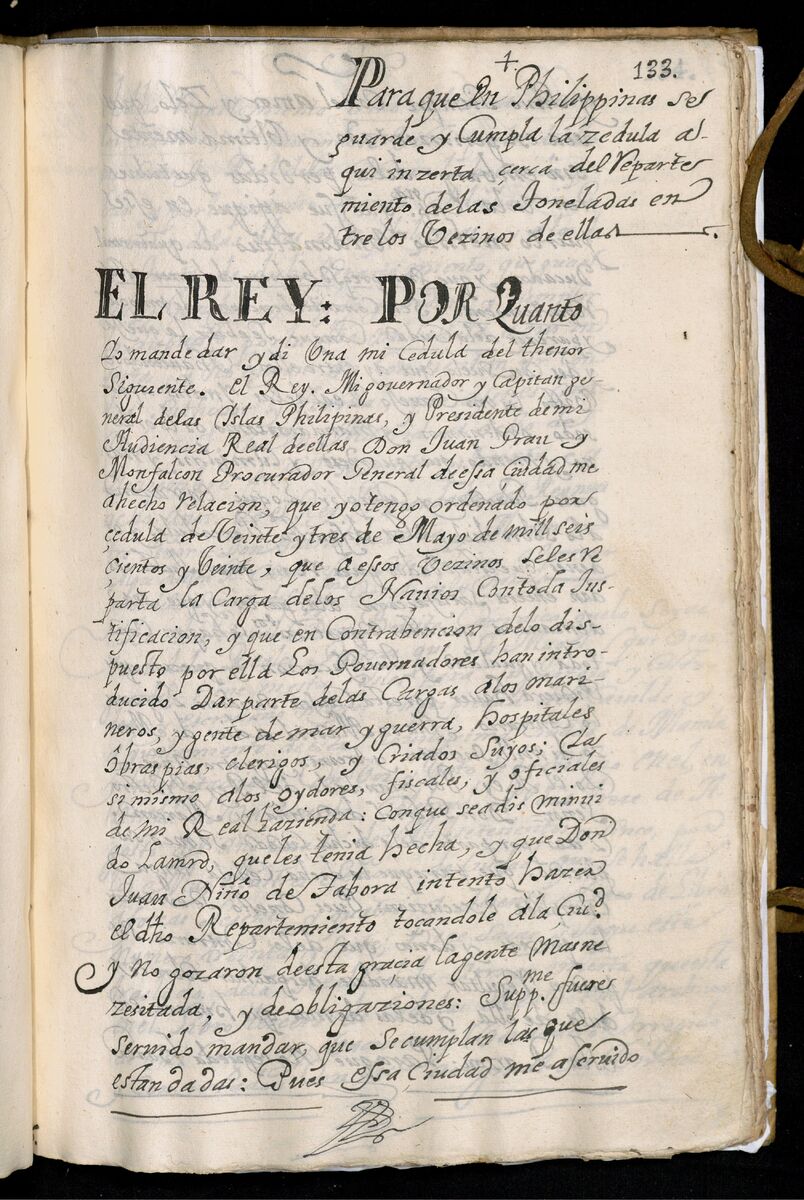 +
133.
Para que En Philippinas se
guarde y Cumpla la zedula a-
qui inzerta çerca del Reparte
miento delas Toneladas en
tre los Vezinos de ellas.
EL REY: POR Quanto
Yo mande dar y di Una mi Cedula del thenor
Siguiente. El Rey. Mi governador y Capitan ge-
neral delas Islas Philipinas, y Presidente demi
Audiencia Real de ellas Don Juan Grau y
Monfalcon Procurador General de essa Çiudad me
a hecho relacion, que yo tengo ordenado por
çedula de Veinte y tres de Mayo de mill seis
çientos y Veinte, que a essos Vezinos se les re
parta la Carga de los Navios Con toda Jus-
tificacion, y que en Contrabencion delo dis-
puesto por ella Los Governadores han intro-
ducido Dar parte delas Cargas alos mari-
neros, y gente de mar y guerra, hospitales
Obras pias, clerigos, y Criados Suyos; Y as
si mismo alos oydores, fiscales, y oficiales
de mi Real hazienda: Con que se a dis minui
do Lamrd, que les tenia hecha, y que Don
Juan Niño de Tabora intentó hazer
el dho Repartimiento tocandole ala Çiud.
y no gozaron de esta gracia la gente mas ne
zesitada, y de obligaziones: Supp.me fuese
servido mandar, que se cumplan las que
estan dadas: Pues essa Çiudad me a servido